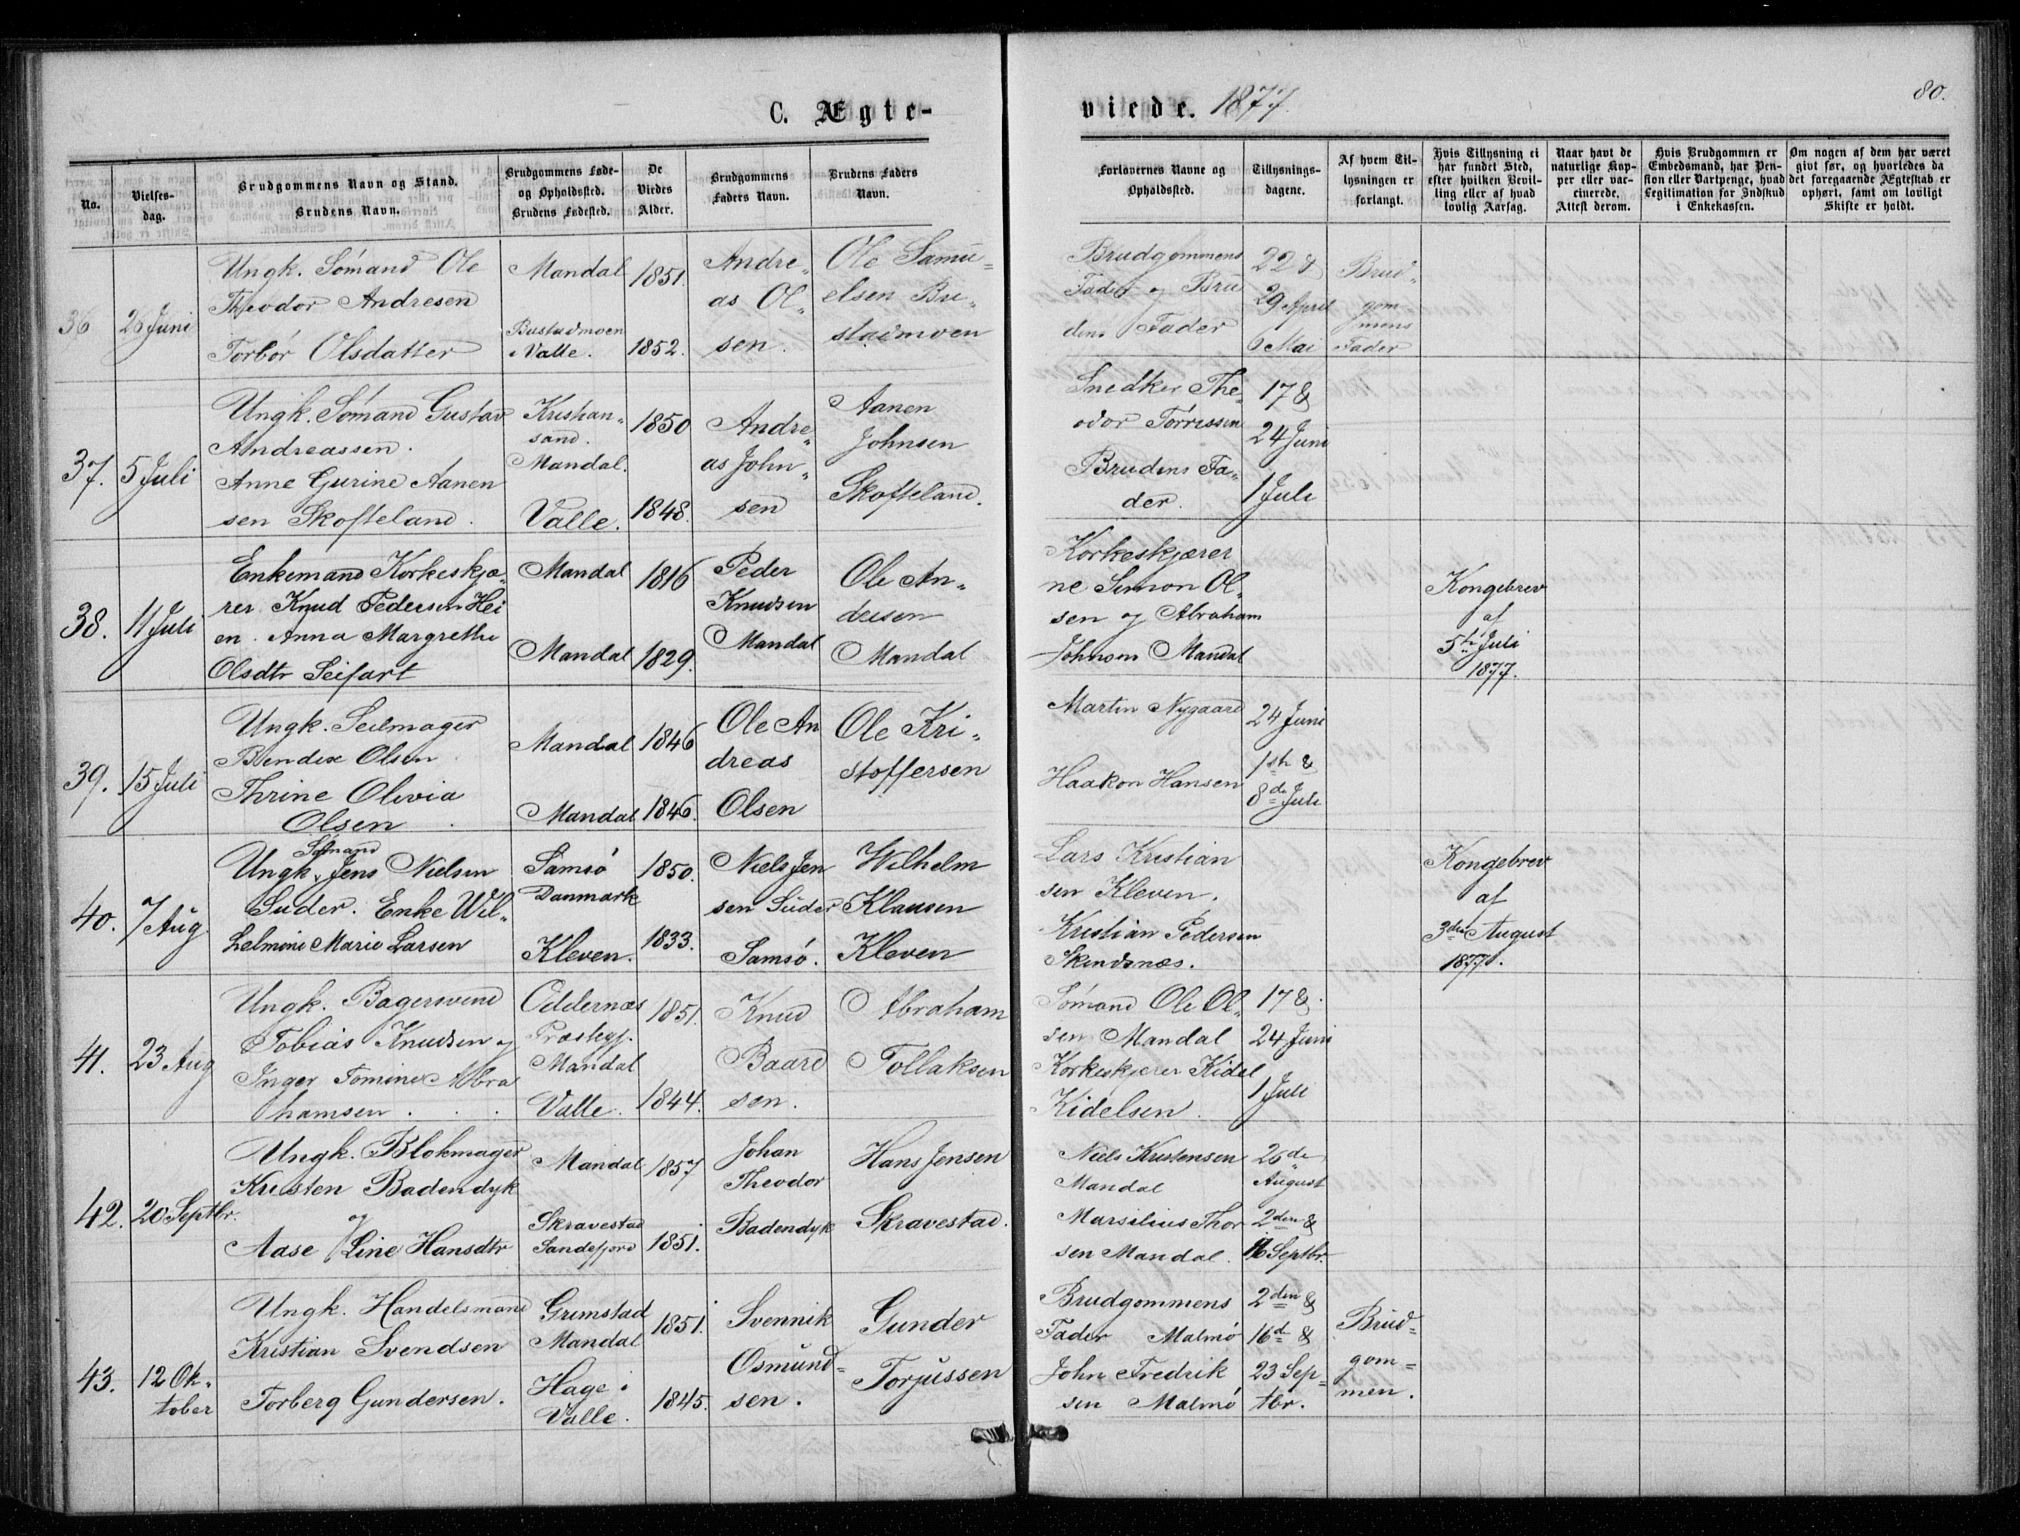 C. Ægte-
viede. 1877.
80.
No.
Vielses-
dag.
Brudgommens Navn og Stand.
Brudens Navn.
Brudgommens Føde-
og Opholdssted.
Brudens Fødested.
De
Viedes
Alder.
Brudgommens
Faders Navn.
Brudens Faders
Navn.
Forlovernes Navne og
Opholdssted.
Tillysnings-
dagene.
Af hvem Til-
lysningen er
forlangt.
Hvis Tillysning ei
har fundet Sted,
efter hvilken Bevil-
ling eller af hvad
lovlig Aarsag.
Naar havt de
naturlige Kop-
per eller vac-
cinerede.
Attest derom.
Hvis Brudgommen er
Embedsmand, har Pen-
sion eller Vartpenge, hvad
Legitimation for Indskud
i Enkekassen.
Om nogen af dem har været
givt før, og hvorledes da
det foregaaende Ægteskab er
ophørt, samt om lovligt
Skifte er holdt.
36
26 Juni
Ungk. Sómand Ole
Theodor Andresen
Torbór Olsdatter
Mandal
Bustadmoen
i Valle.
1851.
1852.
Andre„
as Ol„
sen.
Ole Samu„
elsen Bu„
stadmoen
Brudgommens
Fader og Bru
dens Fader
22 &
29 April
6 Mai
Brud„
gom
mens
Fader
37.
5 Juli
Ungk. Sómand Gustav
Andreassen.
Anne Gurine Aanen
sen Skofteland.
Kristian„
sand.
Mandal.
Valle.
1850
1848.
Andre„
as John„
sen
Aanen
Johnsen
Skofteland.
Snedker The„
odor Tórrissen
Brudens Fa„
der.
17 &
24 Juni
1 Juli
38.
11 Juli
Enkemand Korkeskjæ„
rer Knud Pedersen Hei
en. Anna Margrethe
Olsdtr Seifart
Mandal
Mandal
1816
1829.
Peder
Knudsen
Mandal
Ole An„
dresen
Mandal
Korkeskjærer
ne Simon Ol„
sen og Abraham
Johnsen Mandal
Kongebrev
af
5te Juli
1877.
39.
15 Juli
Ungk. Seilmager
Bendix Olsen
Thrine Olivia
Olsen.
Mandal
Mandal
1846
1846.
Ole An
dreas
Olsen
Ole Kri„
stoffersen
Martin Nygaard
Haakon Hansen
24 Juni
1ste &
8de Juli
40.
7 Aug
Sómand
Ungk. Jens Nielsen
Suder. Enke Wil„
helmine Marie Larsen
Samsó
Danmark
Kleven.
1850.
1833.
Niels Jen
sen Süder
Samsó.
Wilhelm
Klausen
Kleven
Lars Kristian
sen Kleven.
Kristian Pedersen
Skindsnæs.
Kongebrev
af
3die August
1877.
41.
23 Aug
Ungk. Bagersvend
Tobias Knudsen og
Inger Tomine Abra
hamsen.
Oddernæs
Præstegj.
Mandal
Valle.
1851.
1844.
Knud
Baard
sen.
Abraham
Tollaksen
Sómand Ole Ol„
sen Mandal
Korkeskjærer Kidel
Kidelsen.
17 &
24 Juni
1 Juli
42.
20 Septbr.
Ungk. Blokmager
Kristen Badendyk
og
Aase Line Hansdtr
Mandal
Skravestad
Sandefjord
1857
1851.
Johan
Theodor
Badendyk
Hans Jensen
Skravestad.
Niels Kristensen
Mandal
Marsilius Thor
sen Mandal.
26de
August
2den &
16 Septbr.
43.
12 Ok„
tober
Ungk. Handelsmand
Kristian Svendsen
Torberg Gundersen.
Grimstad
Mandal
Hage i
Valle.
1851.
1845.
Svennik
Osmund=
sen.
Gunder
Torjussen
Brudgommens
Fader Malmó
John Fredrik
sen Malmó
2den &
16de &
23 Sep=
tbr.
Brud=
gom=
men.